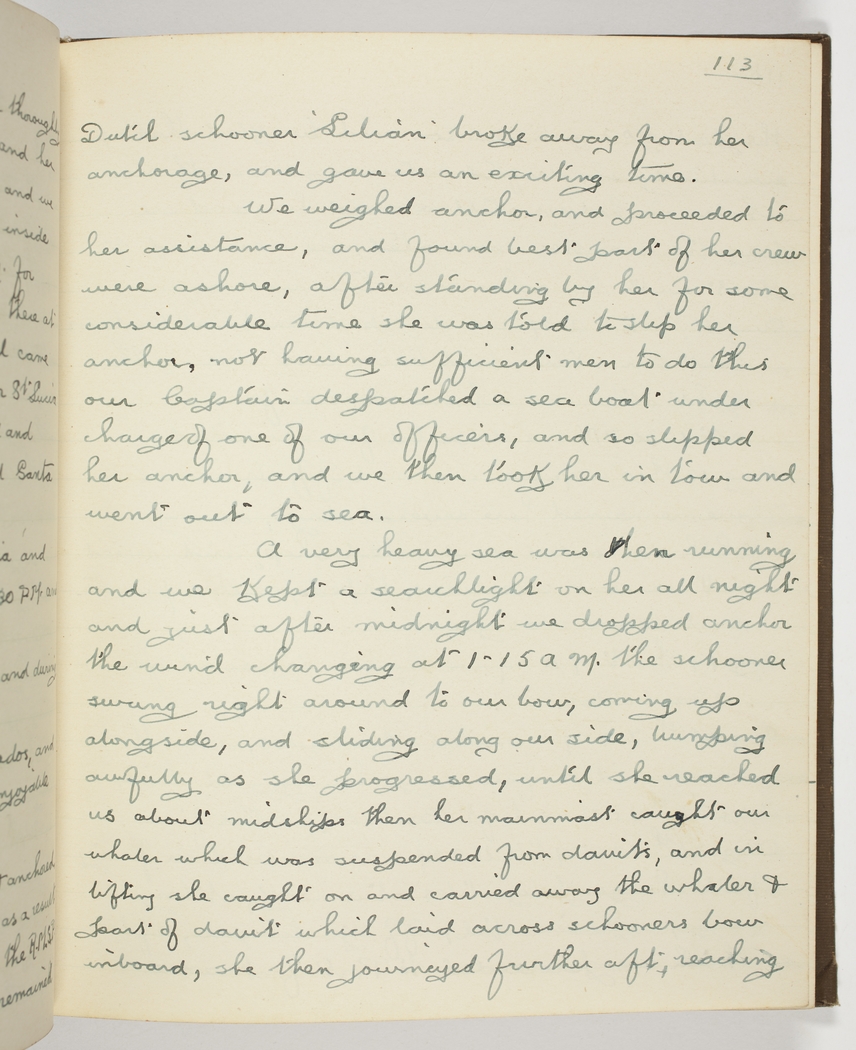 113
thoroughly
and her
and we
inside
for
there at
came
St Lucia
and
Santa
and
30 P.M. an
and during
ados, and
njoyable
anchored
as a result
the R.M.S.P.
remained
Dutch schooner "Lilian" broke away from her
anchorage, and gave us an exciting time.
We weighed anchor, and proceeded to
her assistance, and found best part of her crew
were ashore, after standing by her for some
considerable time she was told to slip her
anchor, not having sufficient men to do this
our Captain despatched a sea boat under
charge of one of our officers, and so slipped
her anchor, and we then took her in tow and
went out to sea.
A very heavy sea was then running
and we kept a searchlight on her all night
and just after midnight we dropped anchor
the wind changing at 1-15 a m. the schooner
swung right around to our bow, coming up
alongside, and sliding along our side, bumping
awfully as she progressed, until she reached
us about midships then her mainmast caught our
whaler which was suspended from davits, and in
lifting she caught on and carried away the whaler &
part of davit which laid across schooners bow
inboard, she then journeyed further aft, reaching